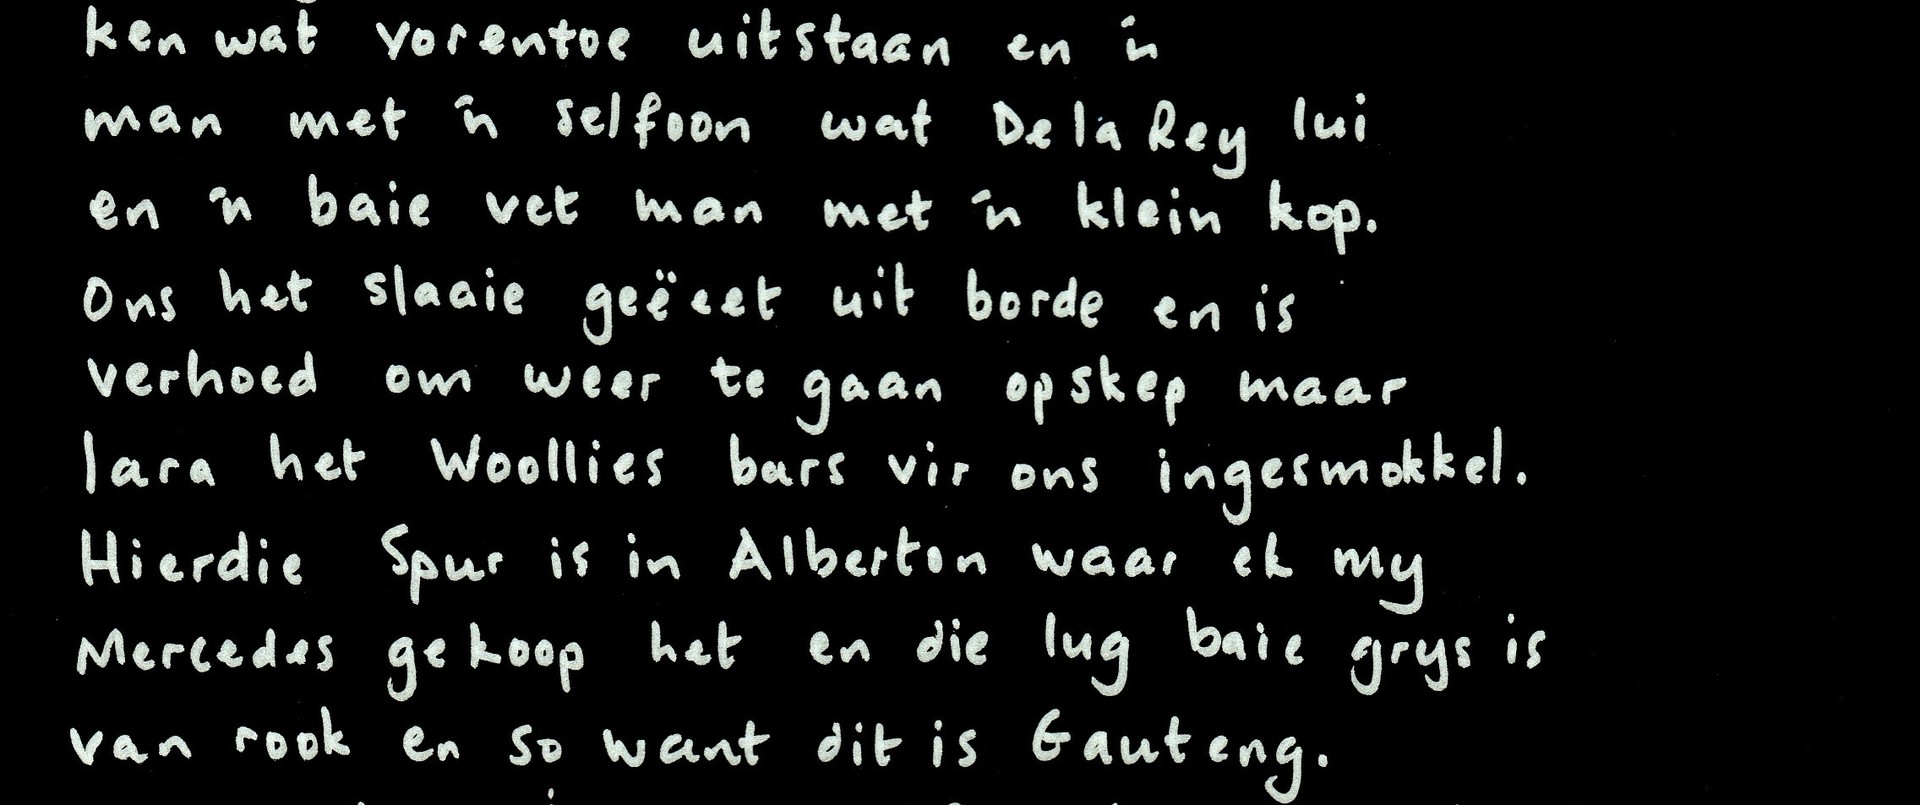 ken wat vorentoe uitstaan en 'n
man met 'n selfoon wat De la Rey lui
en 'n baie vet man met 'n klein kop.
Ons het slaaie geëeet uit borde en is
verhoed om weer te gaan opskep maar
lara het Woollies bars vir ons ingesmokkel.
Hierdie Spur is in Alberton waar ek my
Mercedes gekoop het en die lug baie grys is
van rook en so want dit is Gauteng.